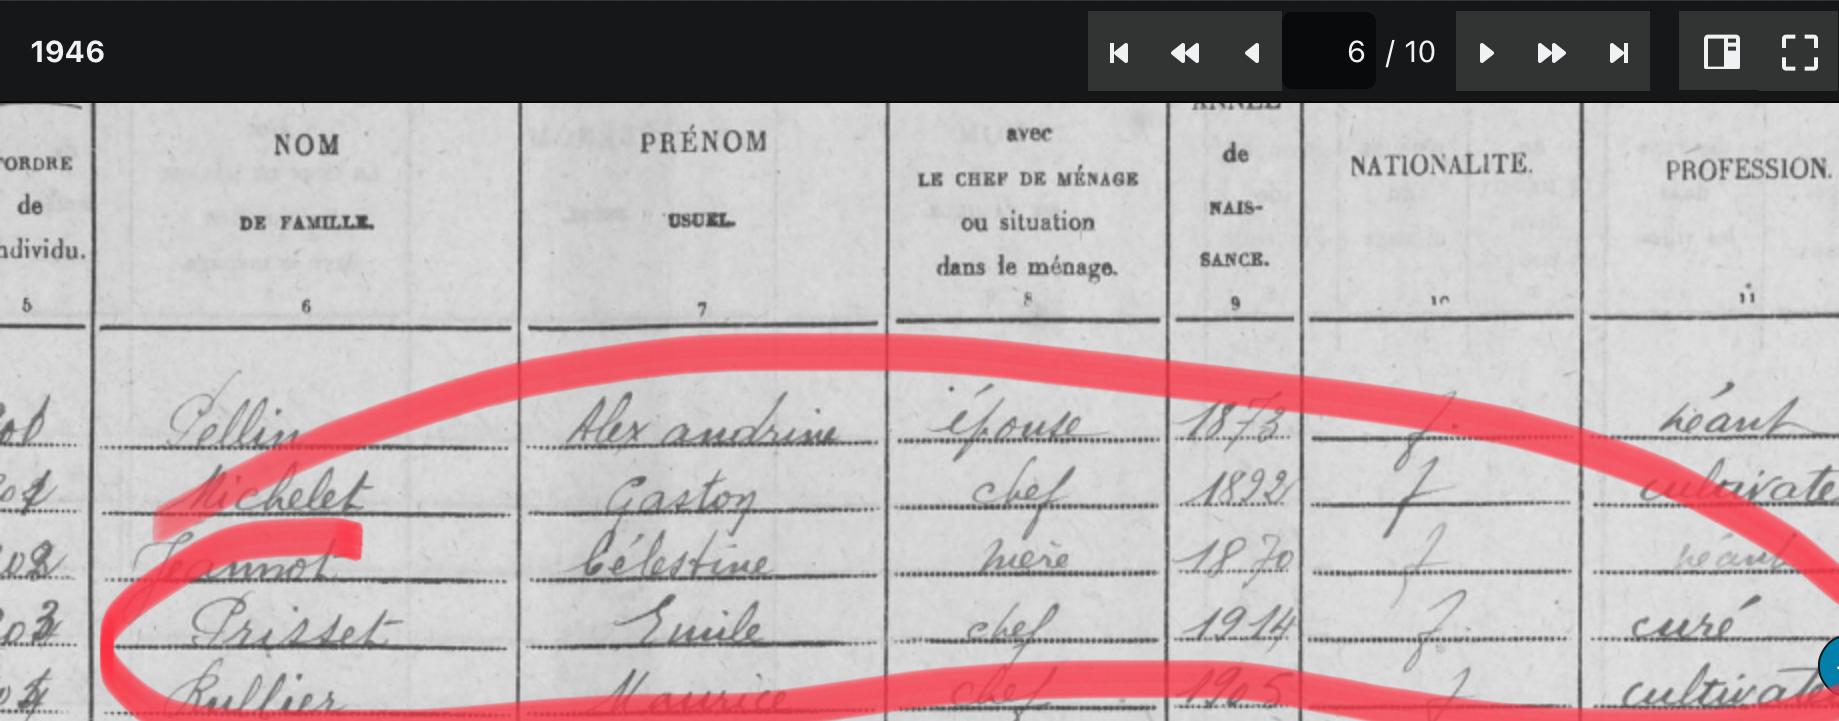 1946 6 / 10
ANNÉE
NOM PRÉNOM avec de NATIONALITE. PROFESSION.
'ORDRE LE CHEF DE MÉNAGE NAIS-
de DE FAMILLE. USUEL. ou situation SANCE.
ndividu. dans le ménage.
5 6 7 8 9 10 11
Pellin Alexandrine épouse 1873 f. néant
Michelet Gaston chef 1892 f cultivate
Jeannot Célestine mère 1870 f néant
Prisset Emile chef 1914 f. curé
Rullier Maurice chef 1905 f cultivate